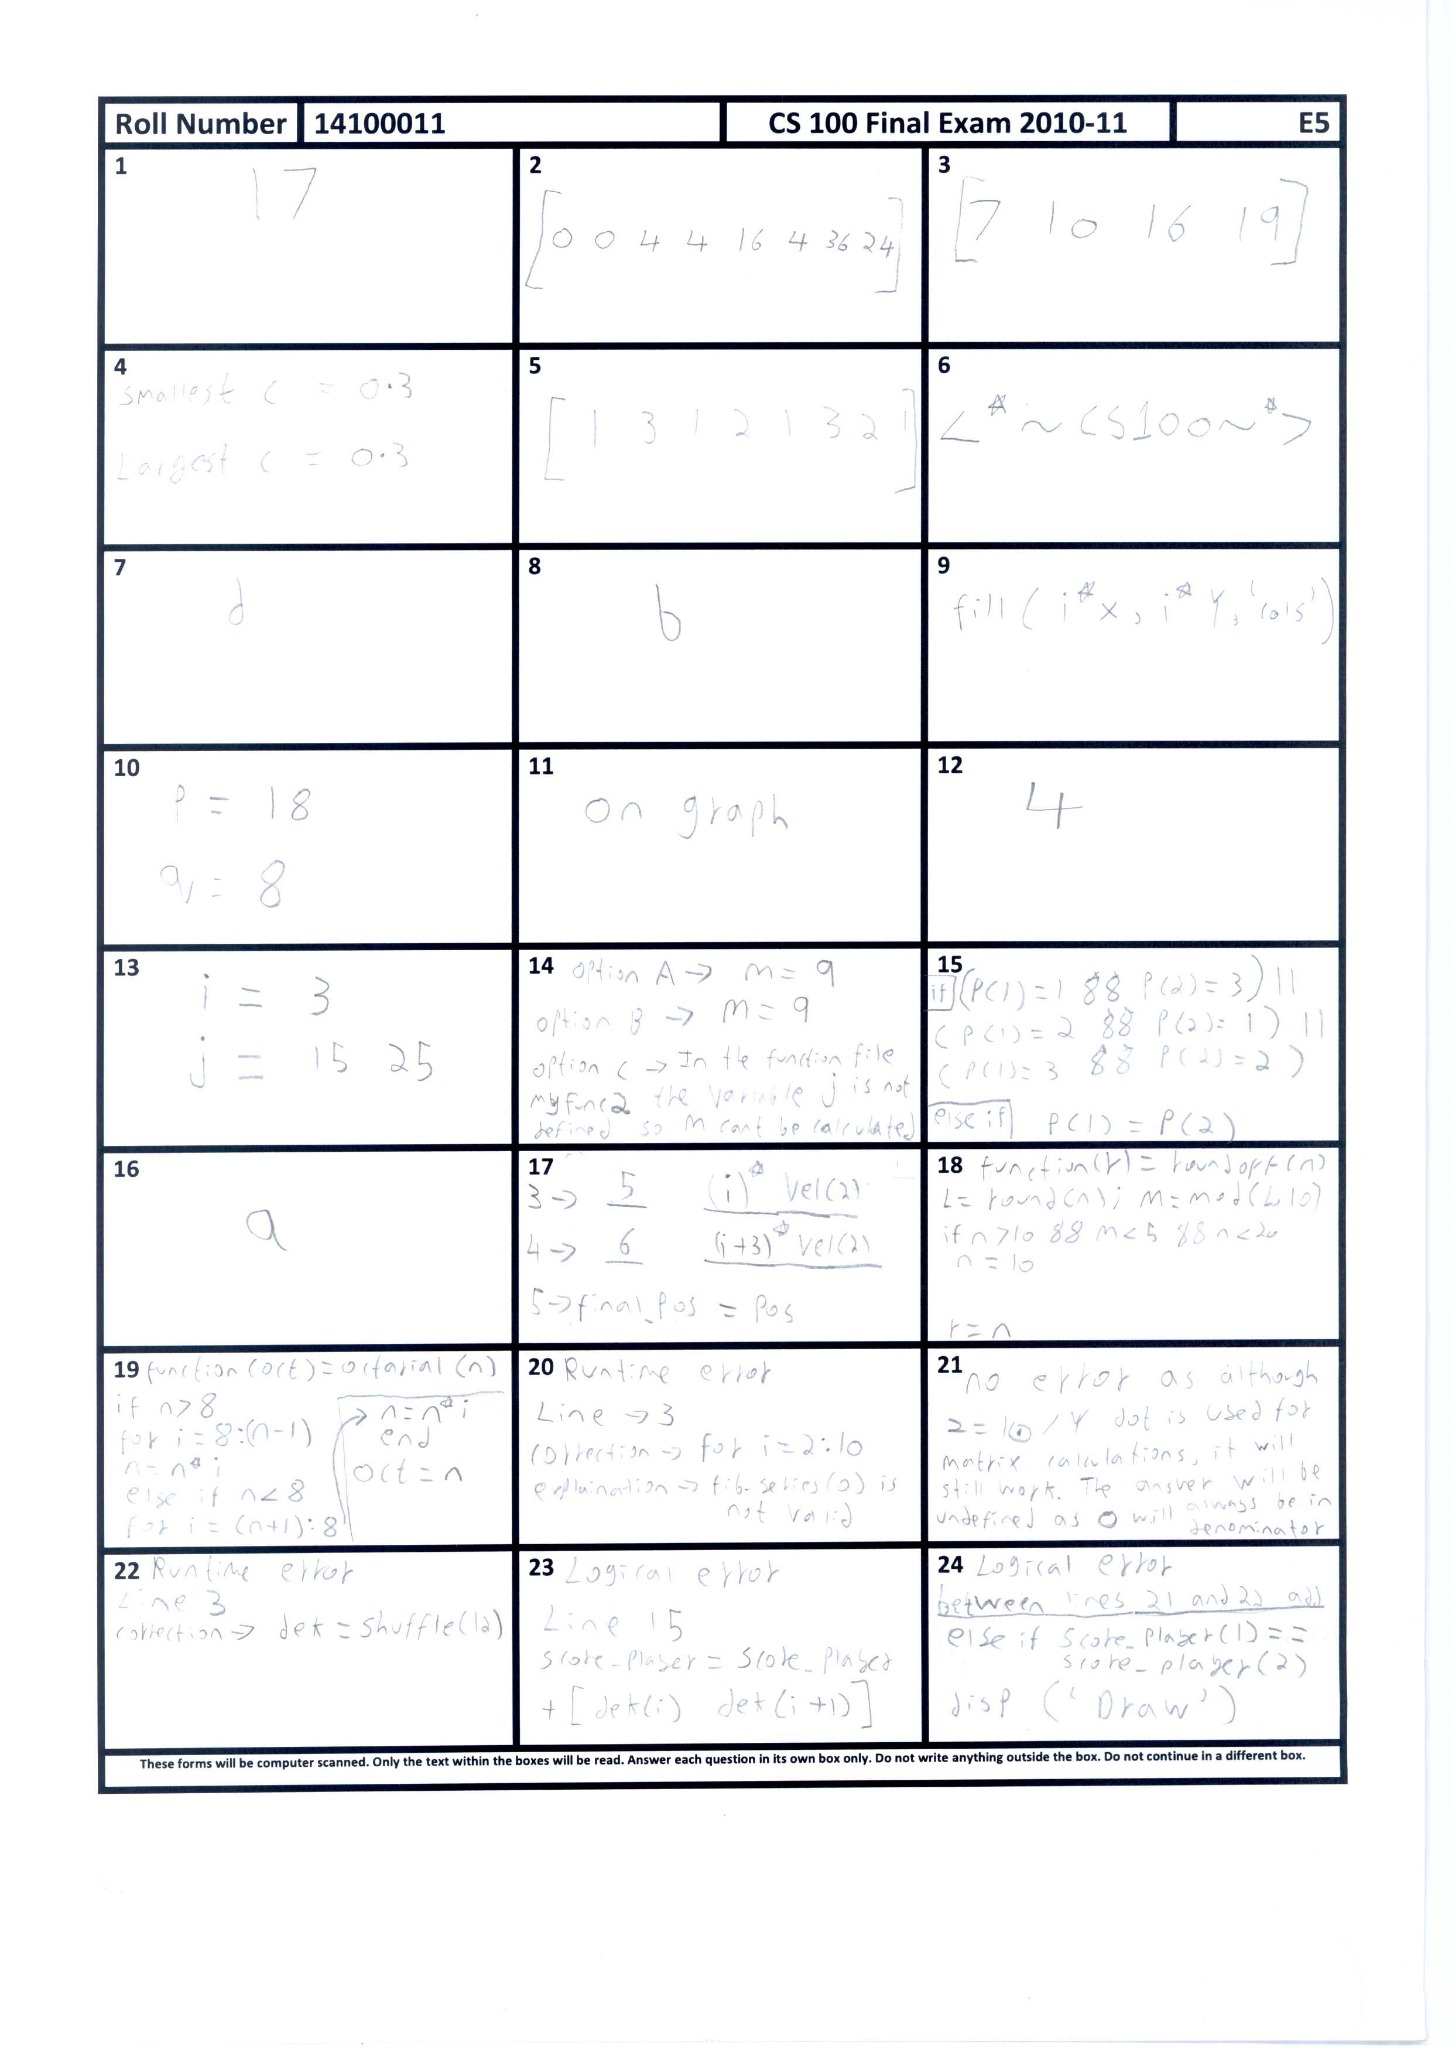 Roll Number 14100011 CS 100 Final Exam 2010-11 E5
1
17
2
[0 0 4 4 16 4 36 24]
3
[7 10 16 19]
4
smallest c = 0.3
Largest c = 0.3
5
[1 3 1 2 1 3 2 1]
6
<*~CS100~*>
7
d
8
b
9
fill(i*x, i*Y, 'cols')
10
P = 18
q = 8
11
on graph
12
4
13
i = 3
j = 15 25
14 option A → m = 9
option B → m = 9
option C → In the function file
myfunc2 the variable j is not
defined so m cant be calculated
15
if (P(1)=1 && P(2)=3) ||
(P(1)=2 && P(2)=1) ||
(P(1)=3 && P(2)=2)
else if P(1) = P(2)
16
a
17
3→ 5 (i)* Vel(2)
4→ 6 (i+3)* Vel(2)
5→final_Pos = Pos
18 function(r) = roundoff(n)
L= round(n); M=mod(L,10)
if n>10 && m<5 && n<20
n = 10
r=n
19 function (oct) = octarial (n)
if n>8
for i = 8:(n-1)
n= n*i
else if n<8
for i = (n+1):8
→ n=n*i
end
oct = n
20 Runtime error
Line → 3
correction → for i=2:10
explaination → fib-series(0) is
not valid
21
no error as although
z = 10 / Y dot is used for
matrix calculations, it will
still work. The answer will be
undefined as 0 will always be in
denominator
22 Runtime error
Line 3
correction → dek = shuffle(12)
23 Logical error
Line 15
score_player = score_player
+ [dek(i) dek(i+1)]
24 Logical error
between lines 21 and 22 add
else if score_player(1) ==
score_player(2)
disp ('Draw')
These forms will be computer scanned. Only the text within the boxes will be read. Answer each question in its own box only. Do not write anything outside the box. Do not continue in a different box.